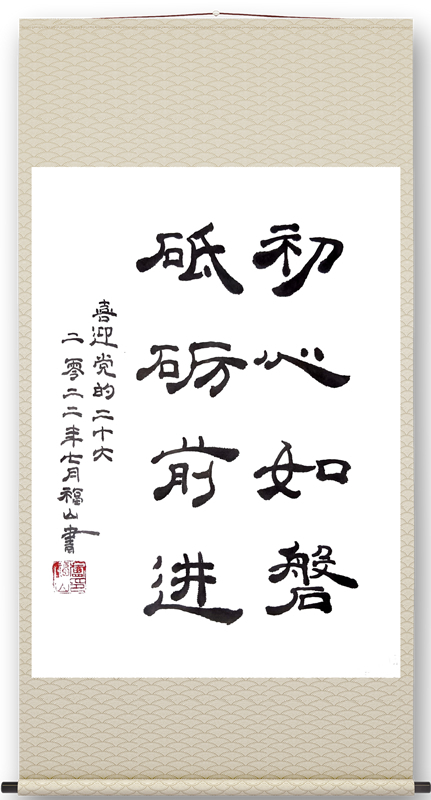 初心如磐
砥砺前进
喜迎党的二十大
二零二二年七月福山書